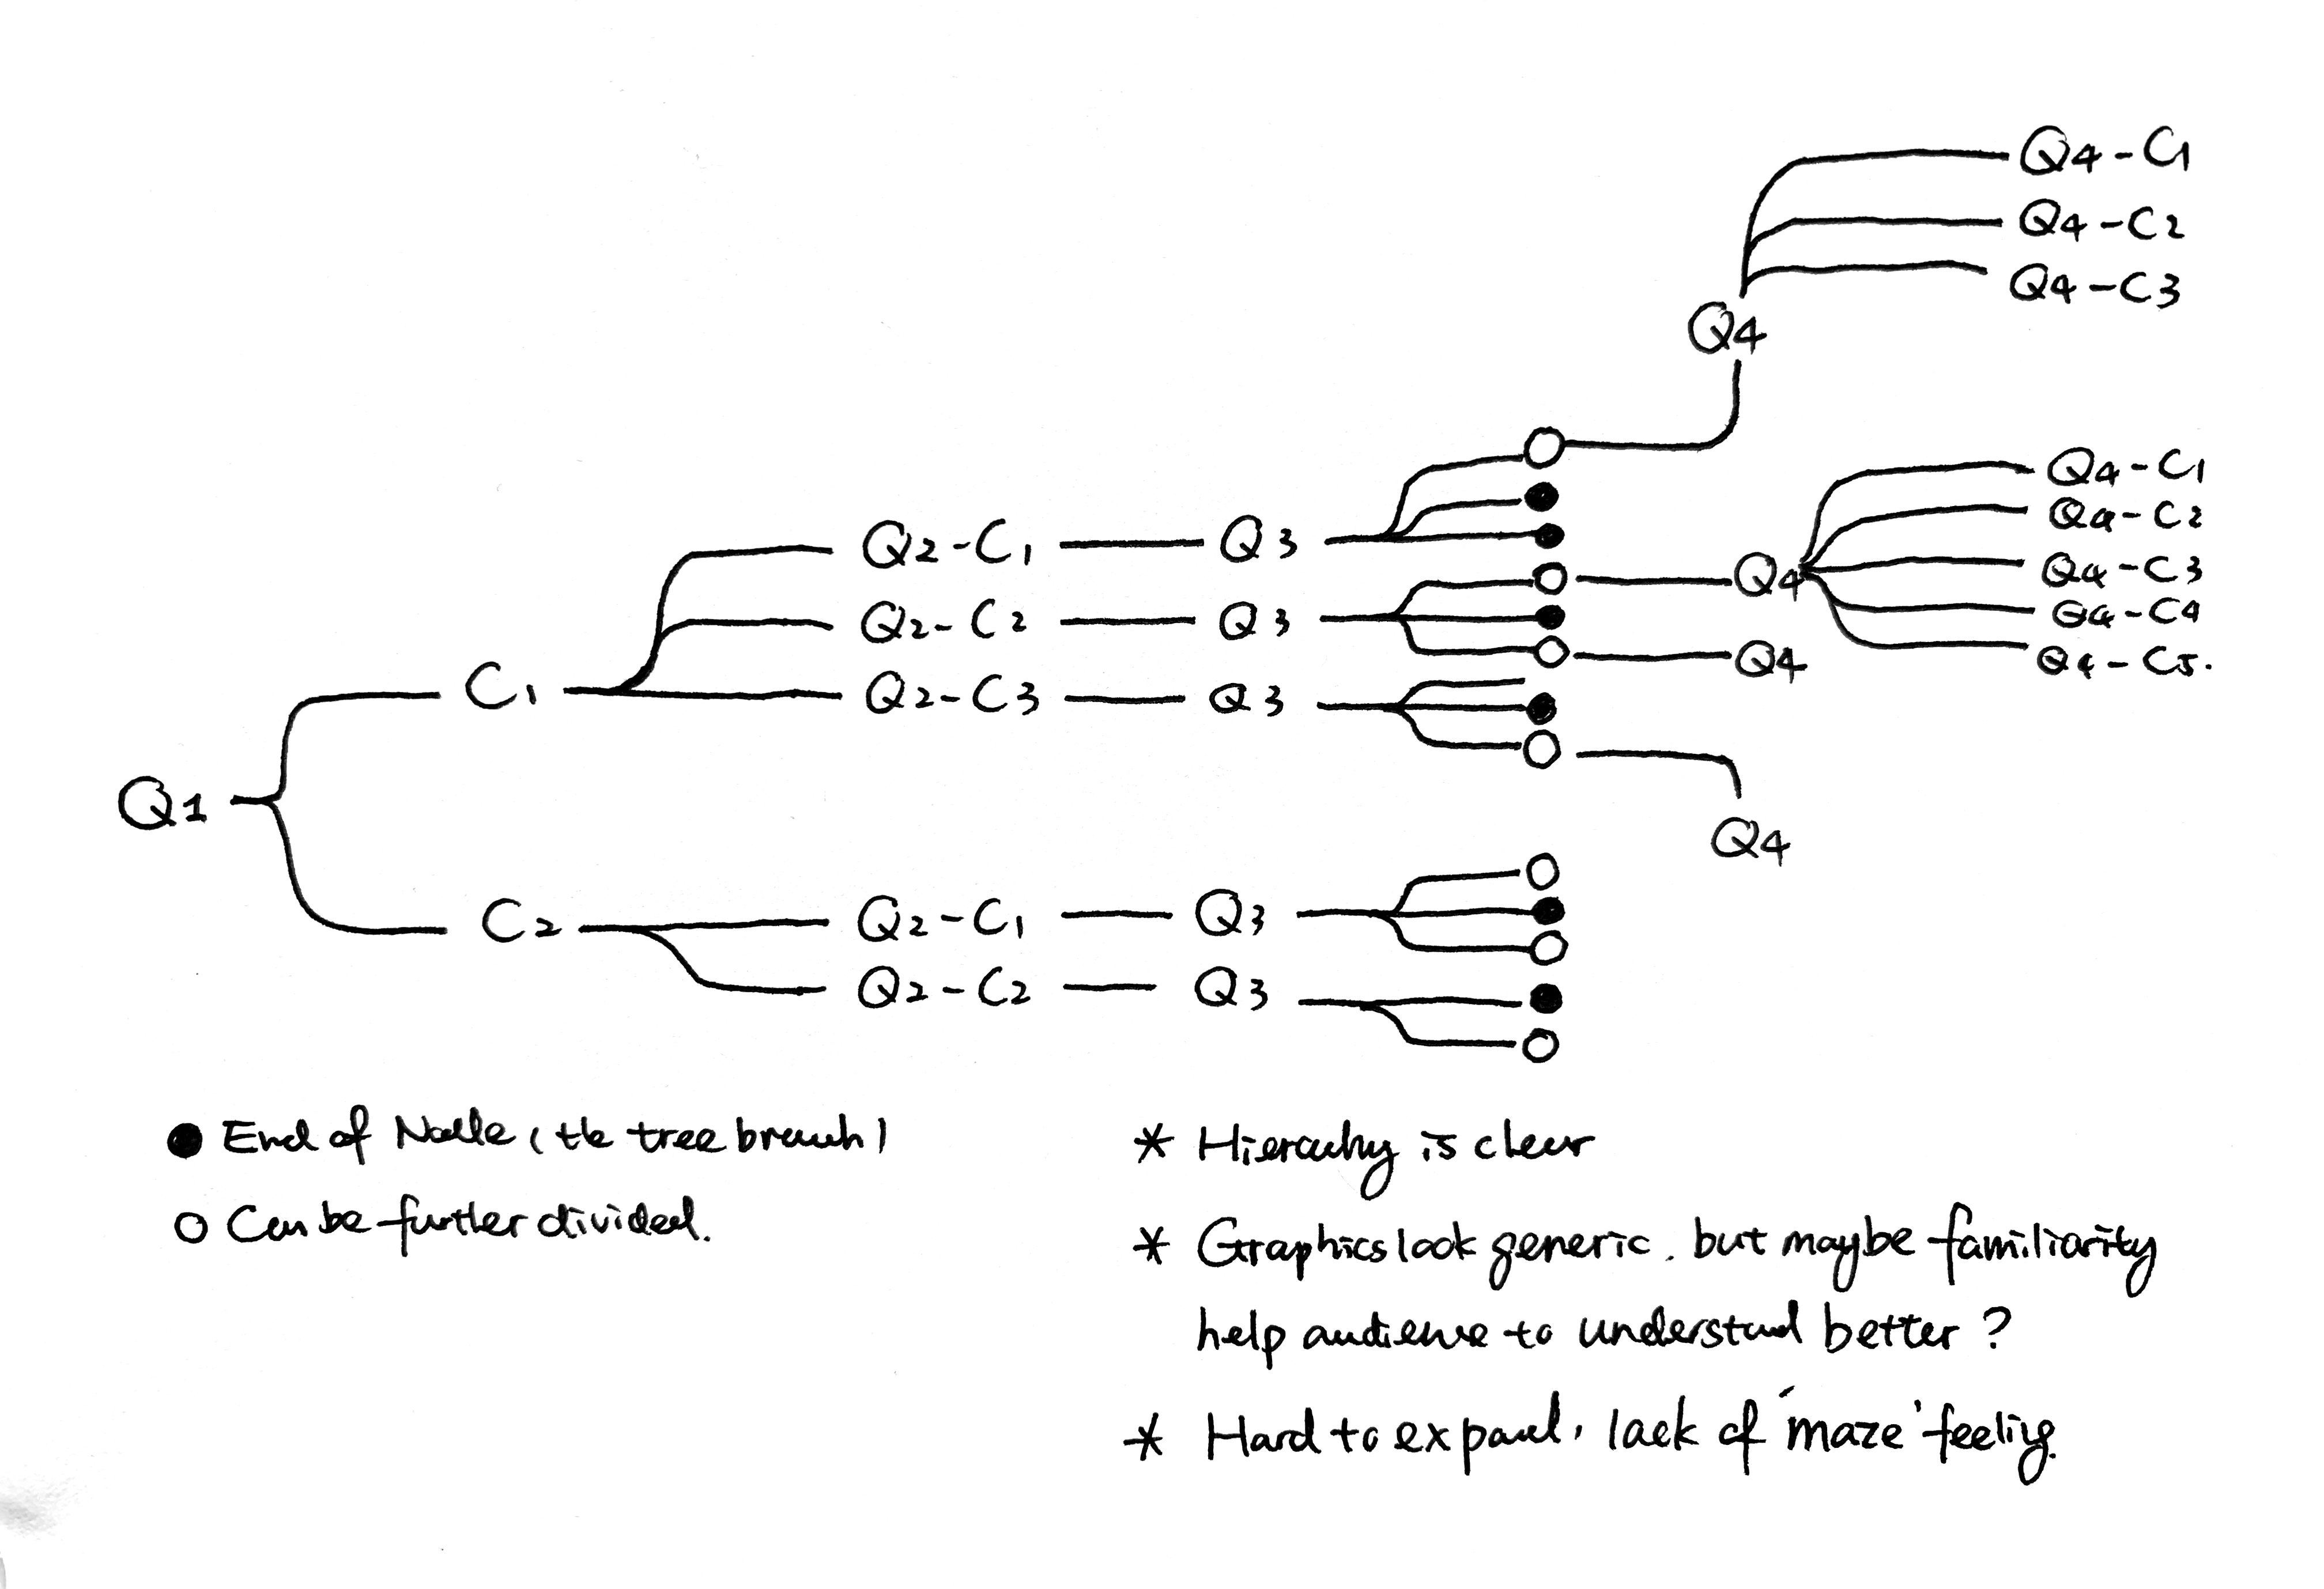 Q4-C1
Q4-C2
Q4-C3
Q4
Q4-C1
Q4-C2
Q4-C3
Q4-C4
Q4-C5.
Q2-C1 Q3
Q4
Q2-C2 Q3
Q4
C1 Q2-C3 Q3
Q1
Q4
C2 Q2-C1 Q3
Q2-C2 Q3
End of Node (the tree branch)
Can be further divided.
* Hierarchy is clear
* Graphics look generic. but maybe familiarity
help audience to understand better?
* Hard to expand, lack of 'maze' feeling.